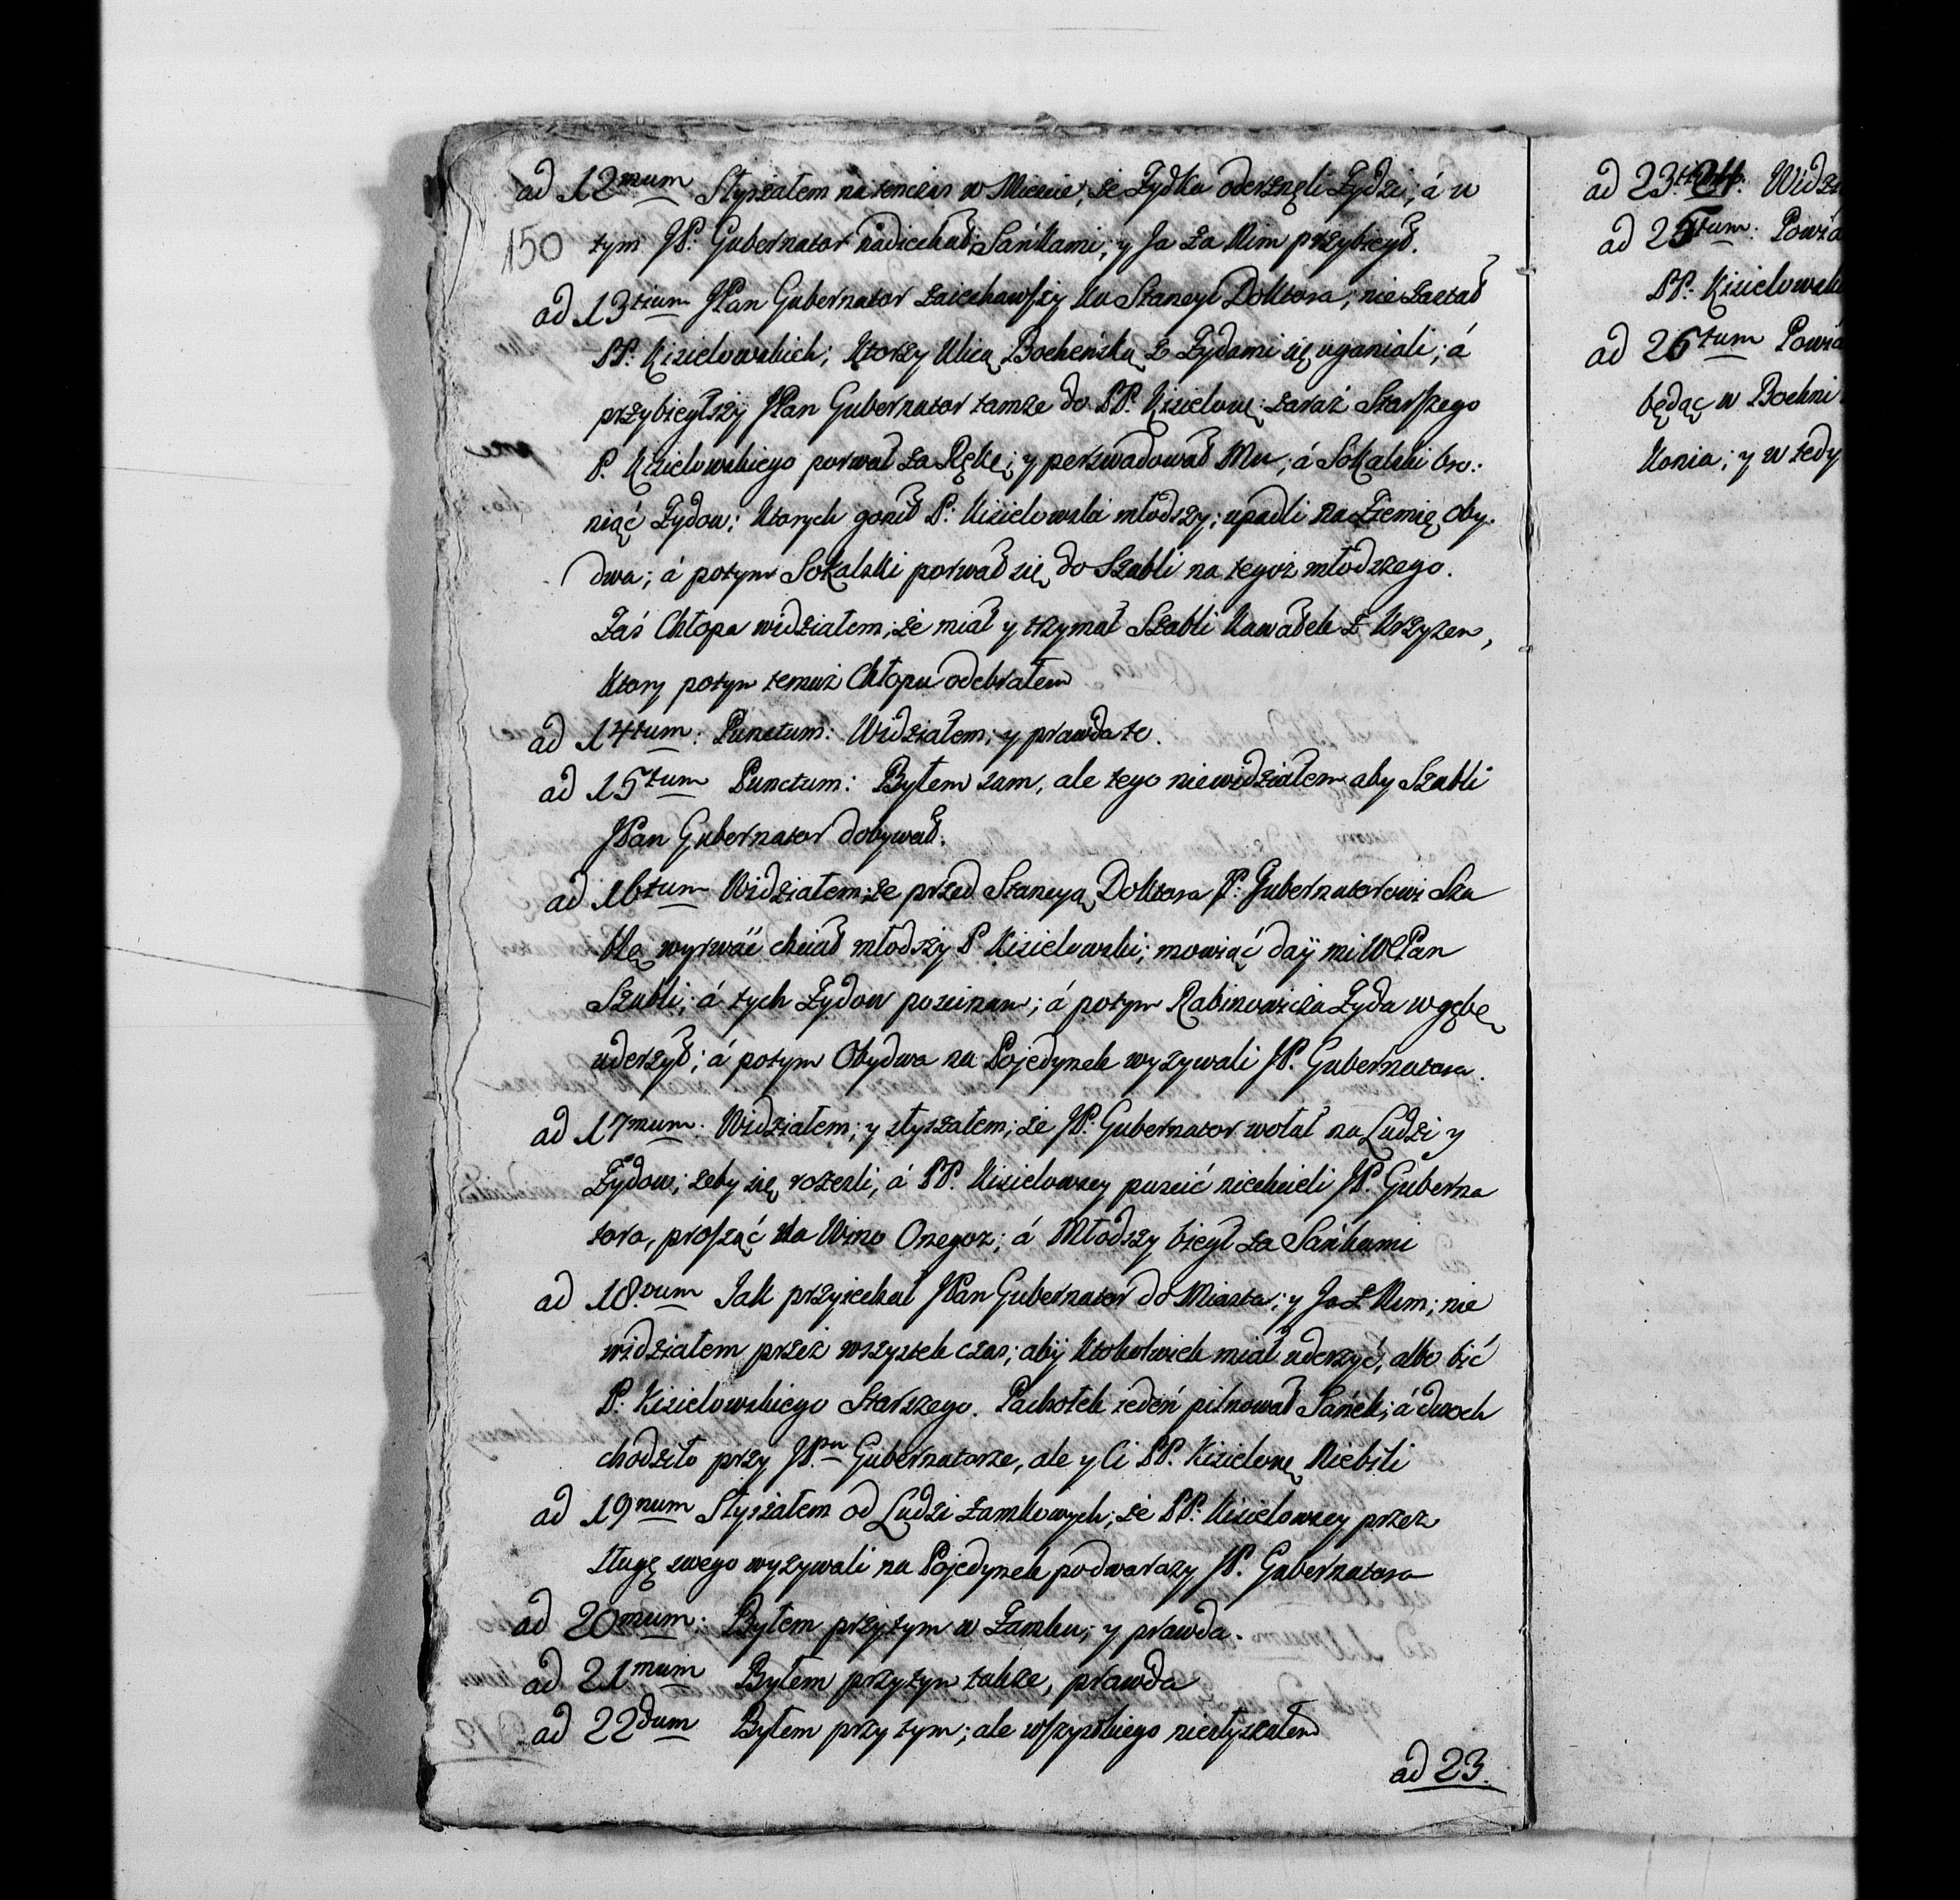 ad 12mum Słyszałem natenczas w Mieście, że Żydka oderznęli Żydzi; á w
150 tym JP: Gubernator nadiechał Sańkami; y Ja za Nim przybiegł.
ad 13tium JPan Gubernator zaiechawszy ku Stancyi Doktora; nie zastał
PP: Kisielowskich; Ktorzy Ulicą Bocheńską z Żydami się uganiali; á
przybiegłszy JPan Gubernator tamże do PP. Kisielow: zaraz Starszego
P. Kisielowskiego porwał za Rękę; y perswadował Mu; á Sokalski bro:
niąć Żydow; Ktorych gonił P: Kisielowski młodszy; upadli na Ziemię oby.
dwa; á potym Sokalski porwał się do Szabli na tegoż młodszego.
Zaś Chłopa widziałem; że miał y trzymał Szabli Kawałek z Krzyżem,
Ktory potym temuż Chłopu odebrałem
ad 14tum: Punctum: Widziałem; y prawda to.
ad 15tum Punctum: Byłem sam, ale tego niewidziałem aby Szabli
JPan Gubernator dobywał.
ad 16tum Widziałem; że przed Stancyą Doktora JP: Gubernatorowi Sza
blę wyrwáć chciał młodszy P Kisielowski; mowiąć daÿ mi WPan
Szabli; á tych Żydow pościnam; á potym Rabinowicza Żyda w gębę
uderzył; á potym Obydwa na Pojedynek wyzywali JP. Gubernatora.
ad 17mum. Widziałem; y słyszałem; że JP: Gubernator wołał na Ludzi y
Żydow; żeby się rozeszli, á PP. Kisielowscy puścić niechcieli JP. Guberna
tora, prosząć na Wino Onegoż; á Młodszy biegł za Sańkami
ad 18.vum Jak przyiechał JPan Gubernator do Miasta; y Ja z Nim; nie
widziałem przez wszystek czas; abÿ Ktokolwiek miał uderzyć, albo bić
P. Kisielowskiego Starszego. Pachołek ieden pilnował Sáńek; á dwoch
chodziło przy JPnu Gubernatorze, ale y Ci PP. Kisielow. Niebili
ad 19num Słyszałem od Ludzi zamkowych; że PP: Kisielowscy przez
sługę swego wyzywali na Pojedynek podwarazy JP. Gubernatora
ad 20mum: Byłem przytym w Zamku; y prawda.
ad 21mum Byłem przytym także, prawda
ad 22dum Byłem przy tym; ale wszystkiego niesłyszałem
ad 23.
ad 23 Widz
ad 25tum: Powia
PP: Kisielowsk
ad 26tum Powia
będąc w Bochni
Konia; y w tedy